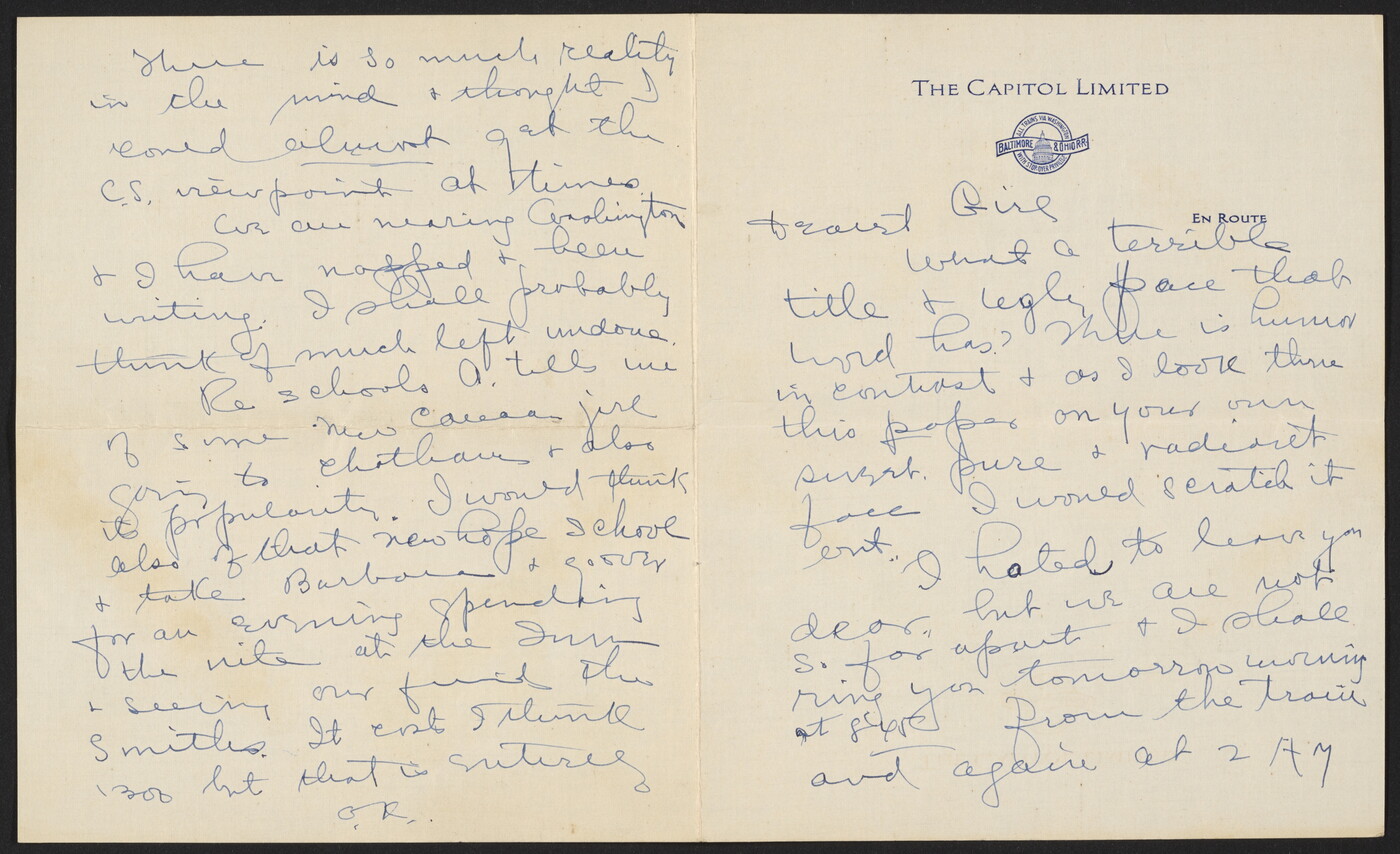 THE CAPITOL LIMITED
ALL TRAINS VIA WASHINGTON
BALTIMORE & OHIO R.R.
WITH STOP OVER PRIVILEGE
EN ROUTE
Dearest Girl
What a terrible
title & ugly face that
word has? There is humor
in contrast & as I look thru
this paper on your own
sweet. pure & radiant
face I would scratch it
out. I hated to leave you
dear, but we are not
so far apart & I shall
ring you tomorrow morning
at from the train
and again at 2 PM
There is so much reality
in the mind & thought I
could almost get the
C.S. viewpoint at times.
We are nearing Washington
& I have napped & been
writing. I shall probably
think of much left undone.
Re schools A. tells me
of some New Canaan girl
going to Chatham & also
its popularity. I would think
also of that new hope school
& take Barbara & go over
for an evening spending
the nite at the Inn
& seeing our friend the
Smiths. It costs I think
1300 but that is entirely
O.K.